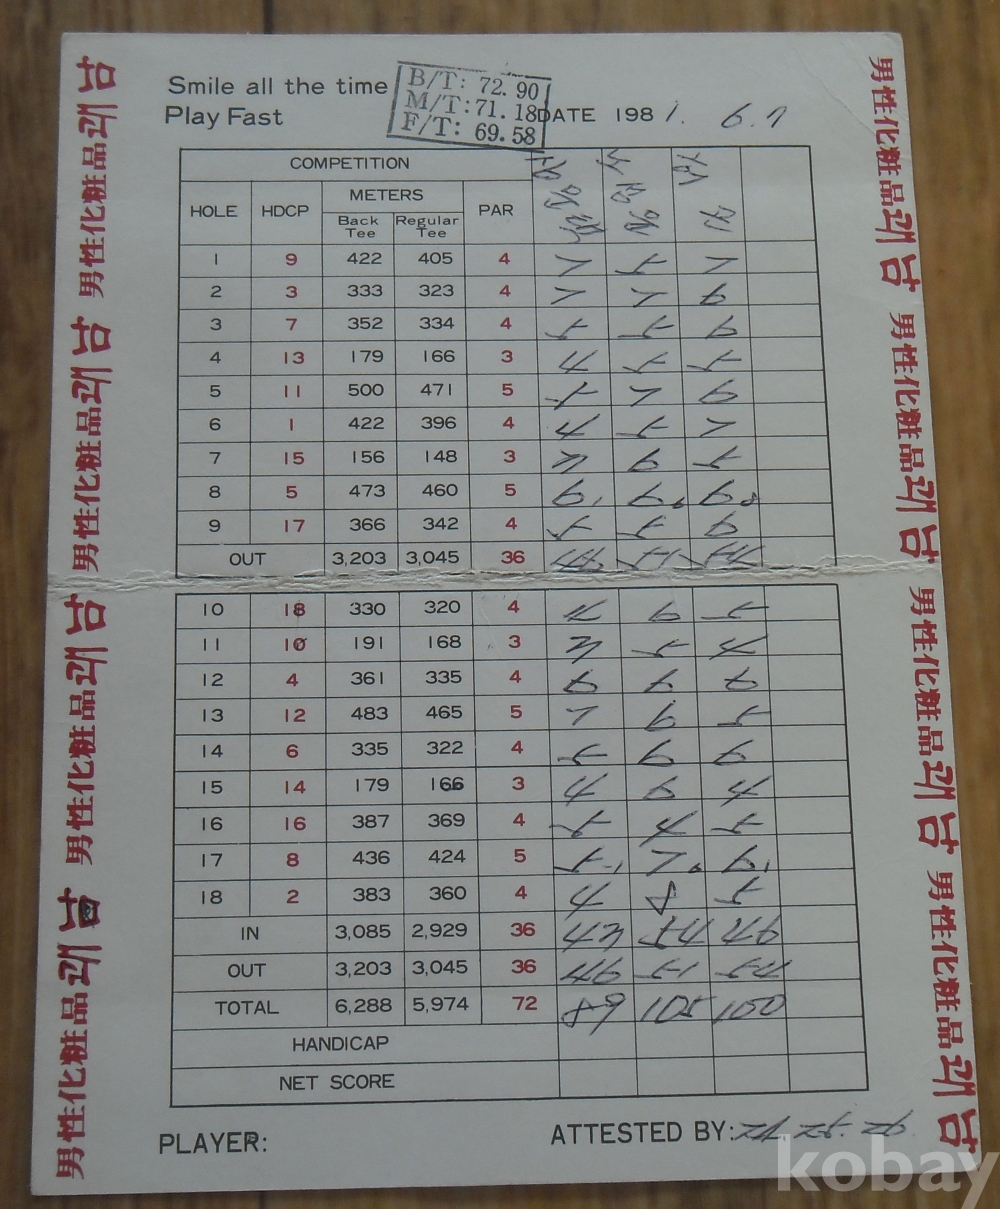 Smile all the time
Play Fast
B/T: 72.90
M/T: 71.18
F/T: 69.58
DATE 1981. 6. 7
COMPETITION
HOLE HDCP METERS PAR
Back Tee Regular Tee
1 9 422 405 4 7 5 7
2 3 333 323 4 7 7 6
3 7 352 334 4 5 5 6
4 13 179 166 3 4 5 5
5 11 500 471 5 5 7 6
6 1 422 396 4 4 5 7
7 15 156 148 3 3 6 5
8 5 473 460 5 6 6 6
9 17 366 342 4 5 5 6
OUT 3,203 3,045 36 46 51 54
10 18 330 320 4 4 6 5
11 10 191 168 3 3 5 4
12 4 361 335 4 6 6 6
13 12 483 465 5 7 6 5
14 6 335 322 4 5 6 6
15 14 179 166 3 4 6 4
16 16 387 369 4 5 4 5
17 8 436 424 5 5 7 6
18 2 383 360 4 4 8 5
IN 3,085 2,929 36 43 54 46
OUT 3,203 3,045 36 46 51 54
TOTAL 6,288 5,974 72 89 105 100
HANDICAP
NET SCORE
PLAYER:
ATTESTED BY:
男性化粧品쾌남
男性化粧品쾌남
男性化粧品쾌남
男性化粧品쾌남
男性化粧品쾌남
男性化粧品쾌남
男性化粧品쾌남
男性化粧品쾌남
kobay